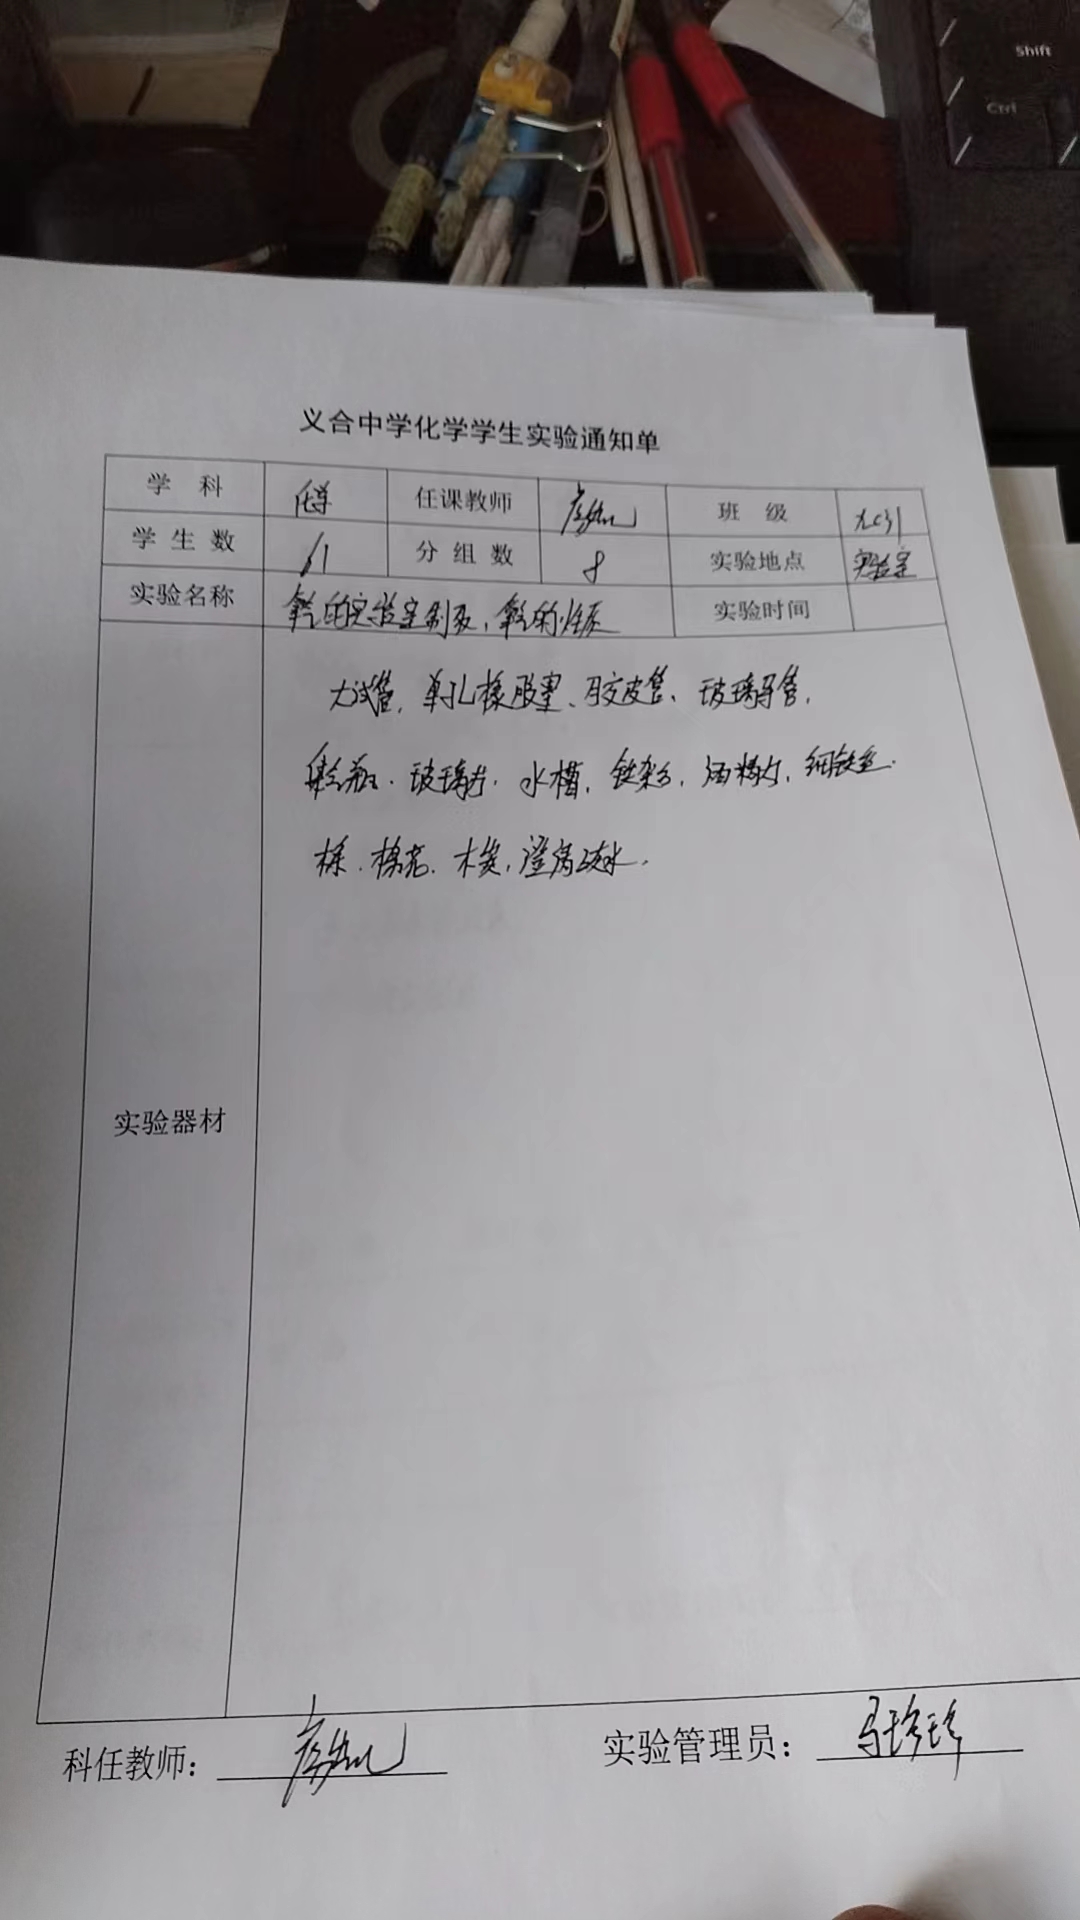 Shift
Ctrl
义合中学化学学生实验通知单
学 科 化学 任课教师 班 级 九(3)
学生数 61 分组数 8 实验地点 实验室
实验名称 氧气的实验室制取、氧气的性质 实验时间
实验器材
大试管、单孔橡胶塞、胶皮管、玻璃导管、
集气瓶、玻璃片、水槽、铁架台、酒精灯、细铁丝、
棉花、木炭、澄清石灰水。
科任教师：
实验管理员：马珍珍